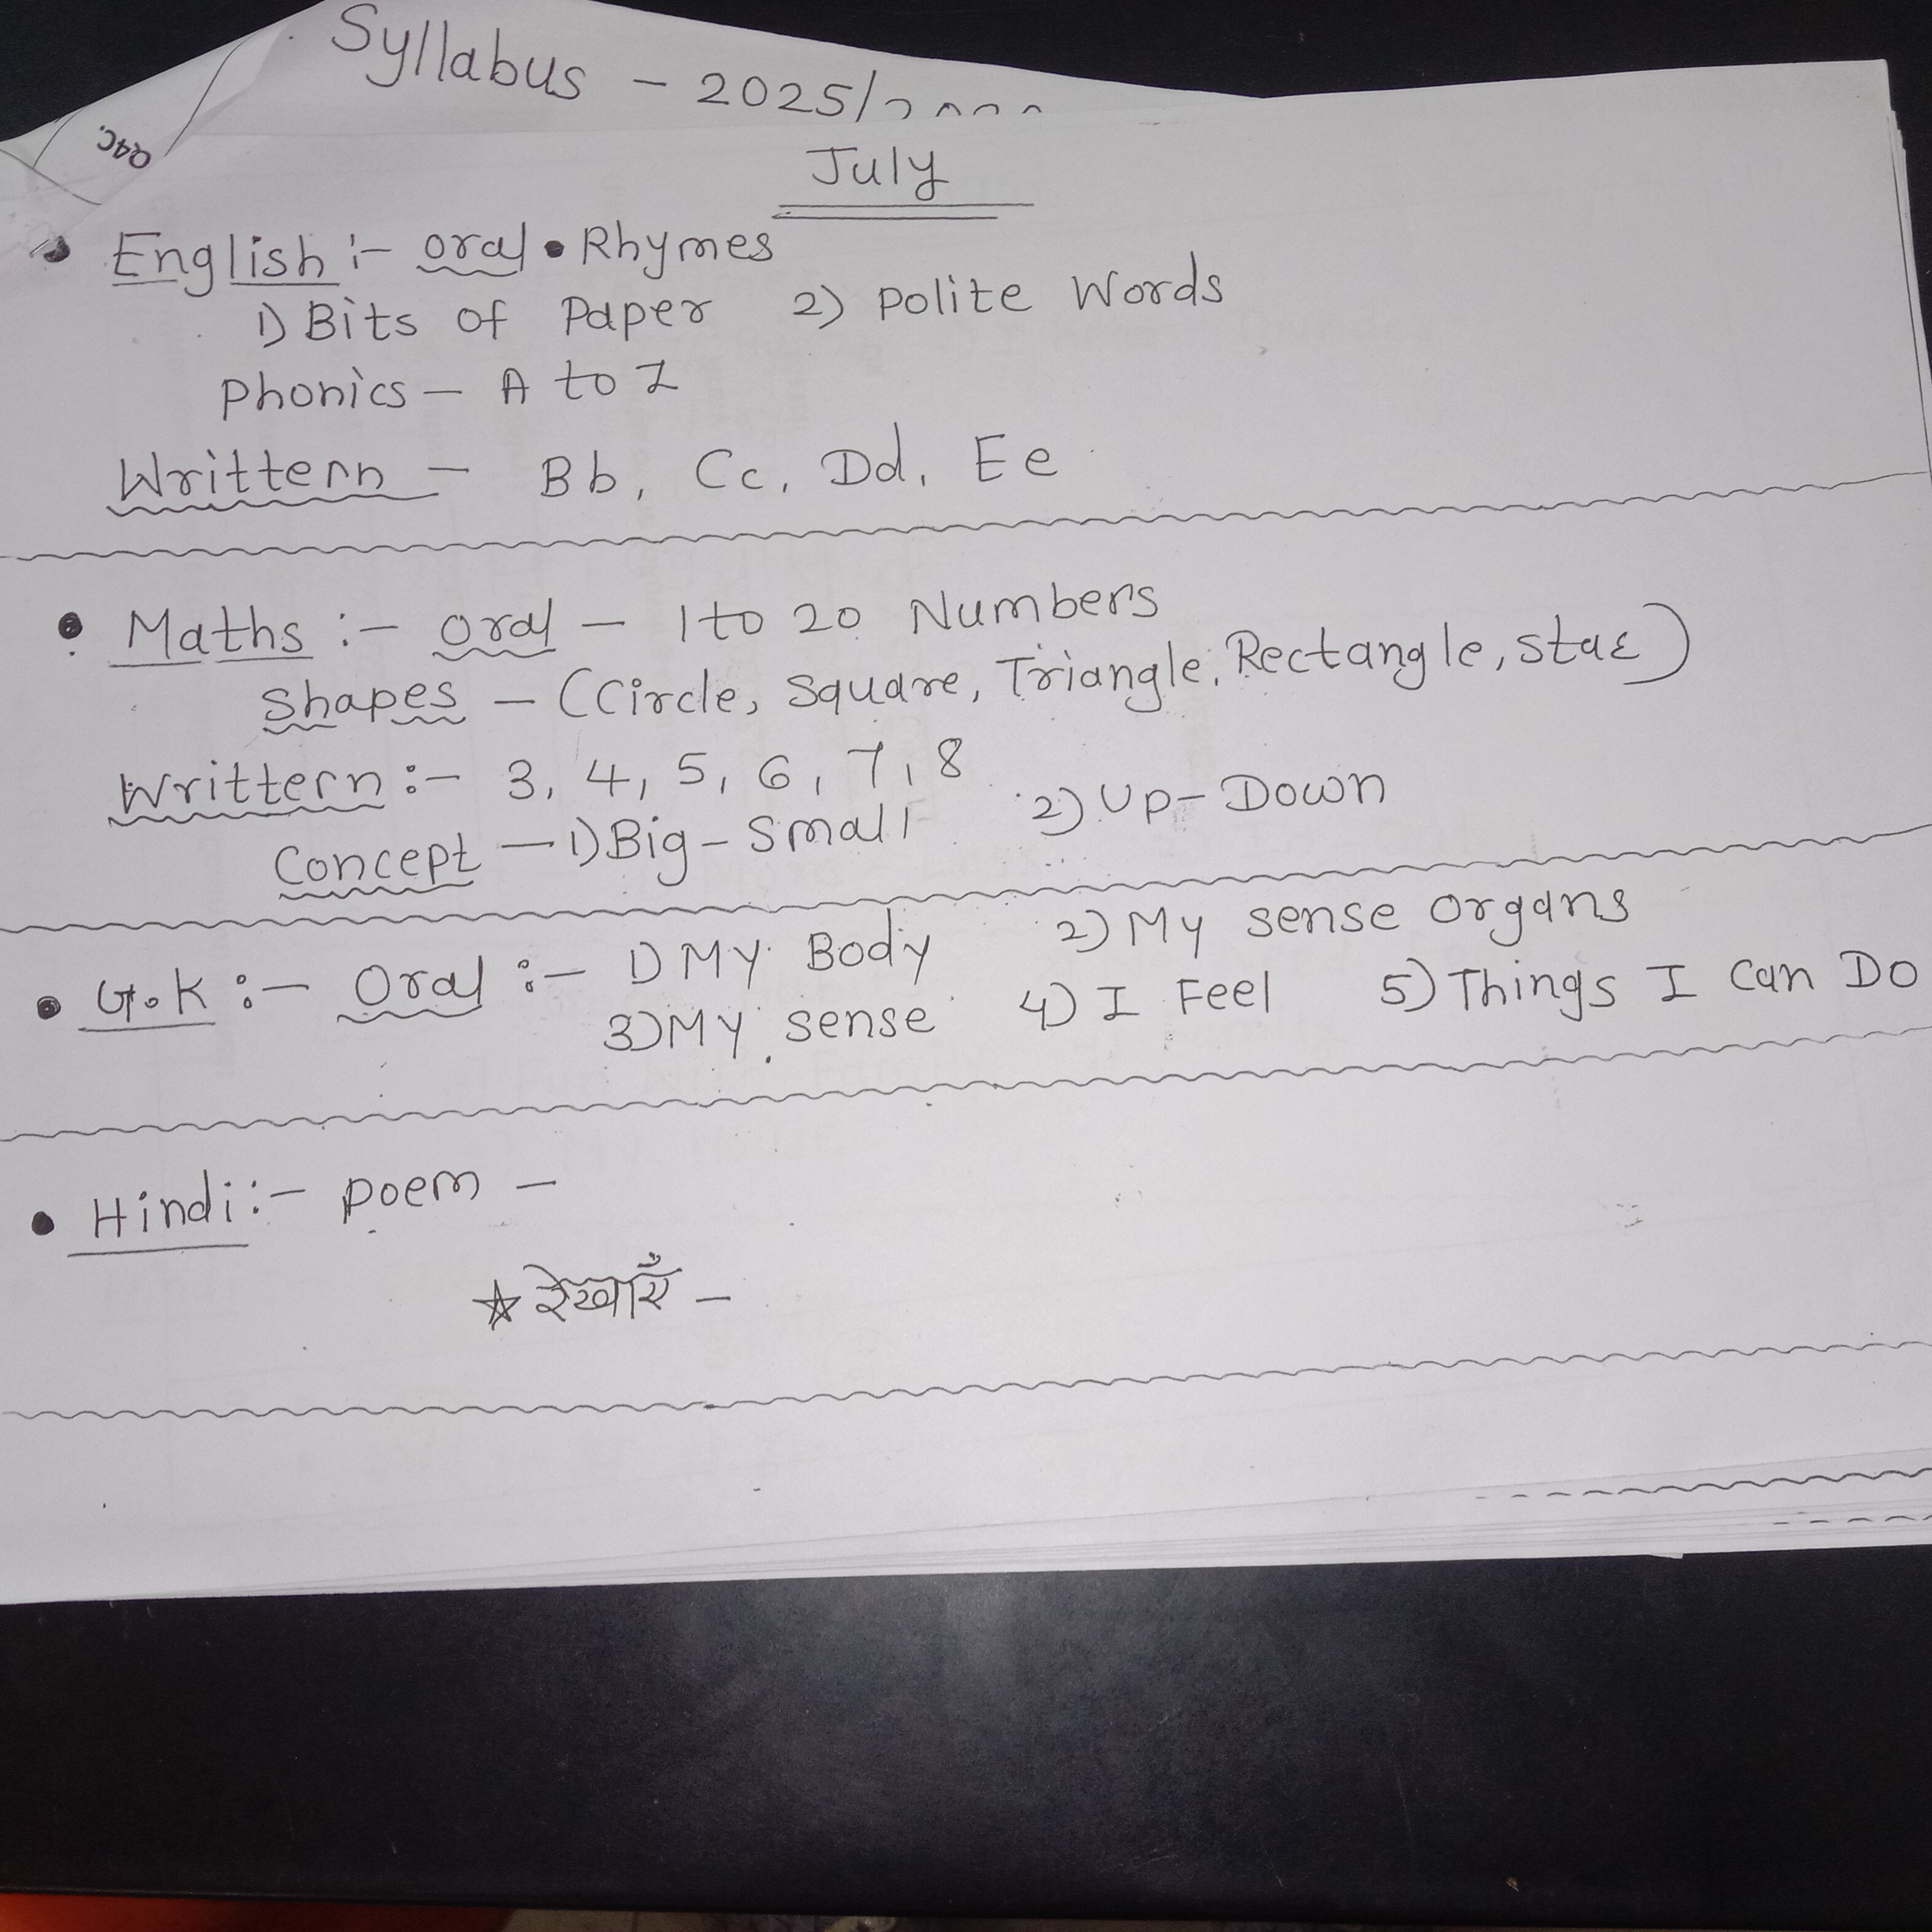 Syllabus - 2025/
Q4C.
July
• English :- oral • Rhymes
1) Bits of Paper 2) Polite Words
Phonics - A to Z
Writtern - Bb, Cc, Dd, Ee
• Maths :- oral - 1 to 20 Numbers
Shapes - (Circle, Square, Triangle, Rectangle, star)
Writtern :- 3, 4, 5, 6, 7, 8
Concept - 1) Big - Small 2) Up - Down
• G.K :- Oral :- 1) My Body 2) My sense organs
3) My sense 4) I Feel 5) Things I Can Do
• Hindi :- Poem -
☆ रेखाएँ -